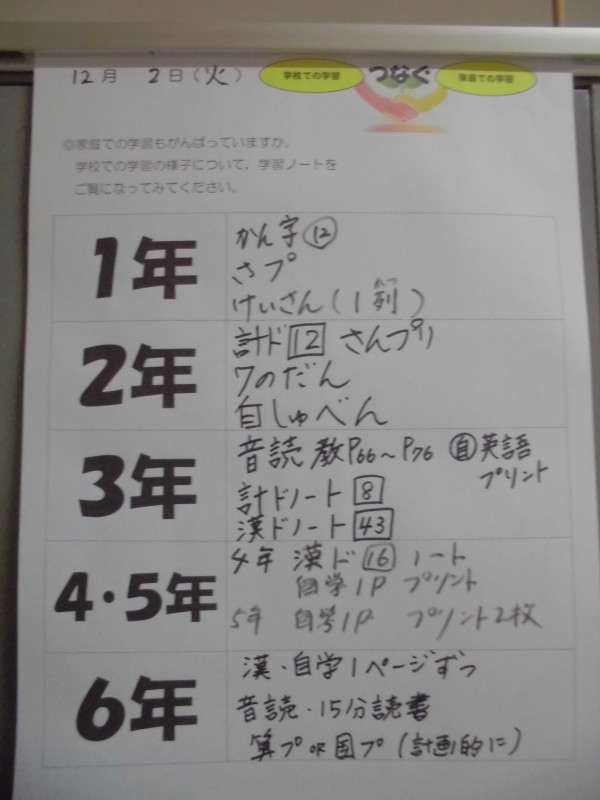 12月 2日(火)
学校での学習 つなぐ 家庭での学習
◎家庭での学習もがんばっていますか。
学校での学習の様子について、学習ノートを
ご覧になってみてください。
1年
かん字⑫
さプ
けいさん(1列)
れつ
2年
計ド12 さんプリ
7のだん
自しゅべん
3年
音読 教P66~P76 自英語
プリント
計ドノート 8
漢ドノート 43
4・5年
4年 漢ド16 ノート
自学1P プリント
5年 自学1P プリント2枚
6年
漢・自学1ページずつ
音読・15分読書
算プor国プ(計画的に)